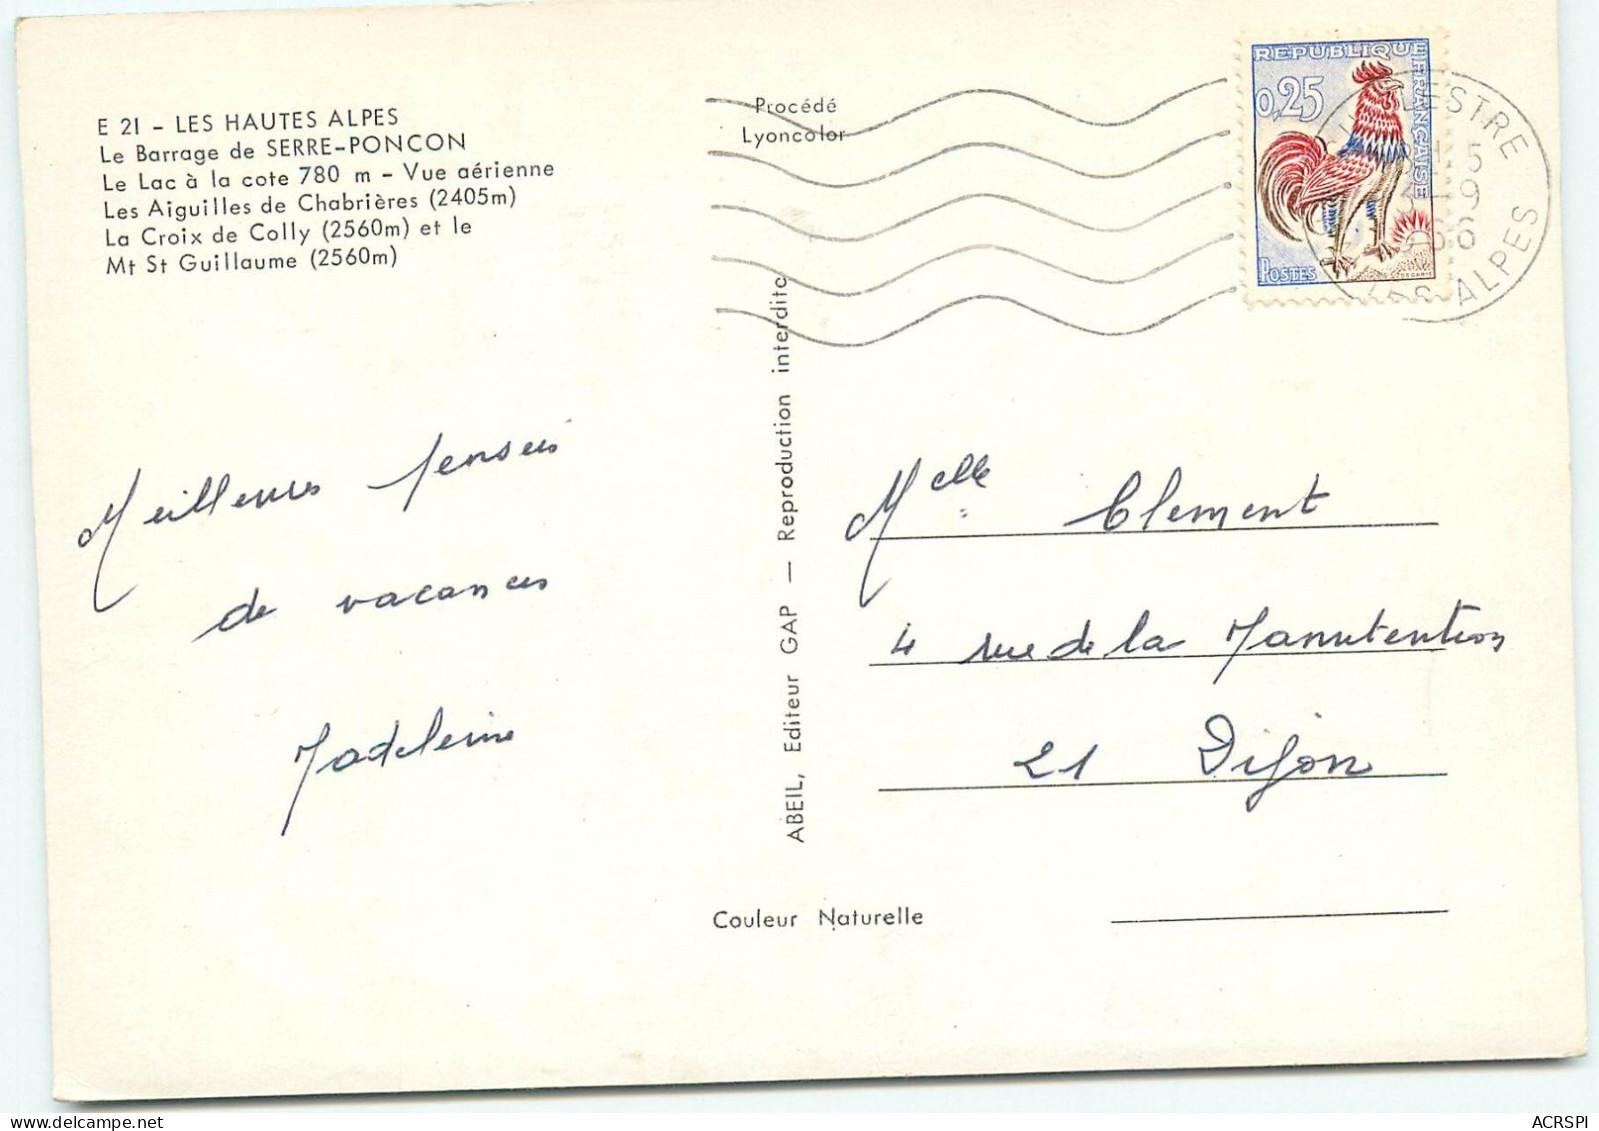 E 21 - LES HAUTES ALPES
Le Barrage de SERRE-PONCON
Le Lac à la cote 780 m - Vue aérienne
Les Aiguilles de Chabrières (2405m)
La Croix de Colly (2560m) et le
Mt St Guillaume (2560m)
Procédé
Lyoncolor
REPUBLIQUE
FRANÇAISE
0,25
POSTES
LESTRE
ALPES
Meilleures pensées
de vacances
Madeleine
ABEIL, Editeur GAP — Reproduction interdite
Melle Clement
4 rue de la Manutention
21 Dijon
Couleur Naturelle
ACRSPI